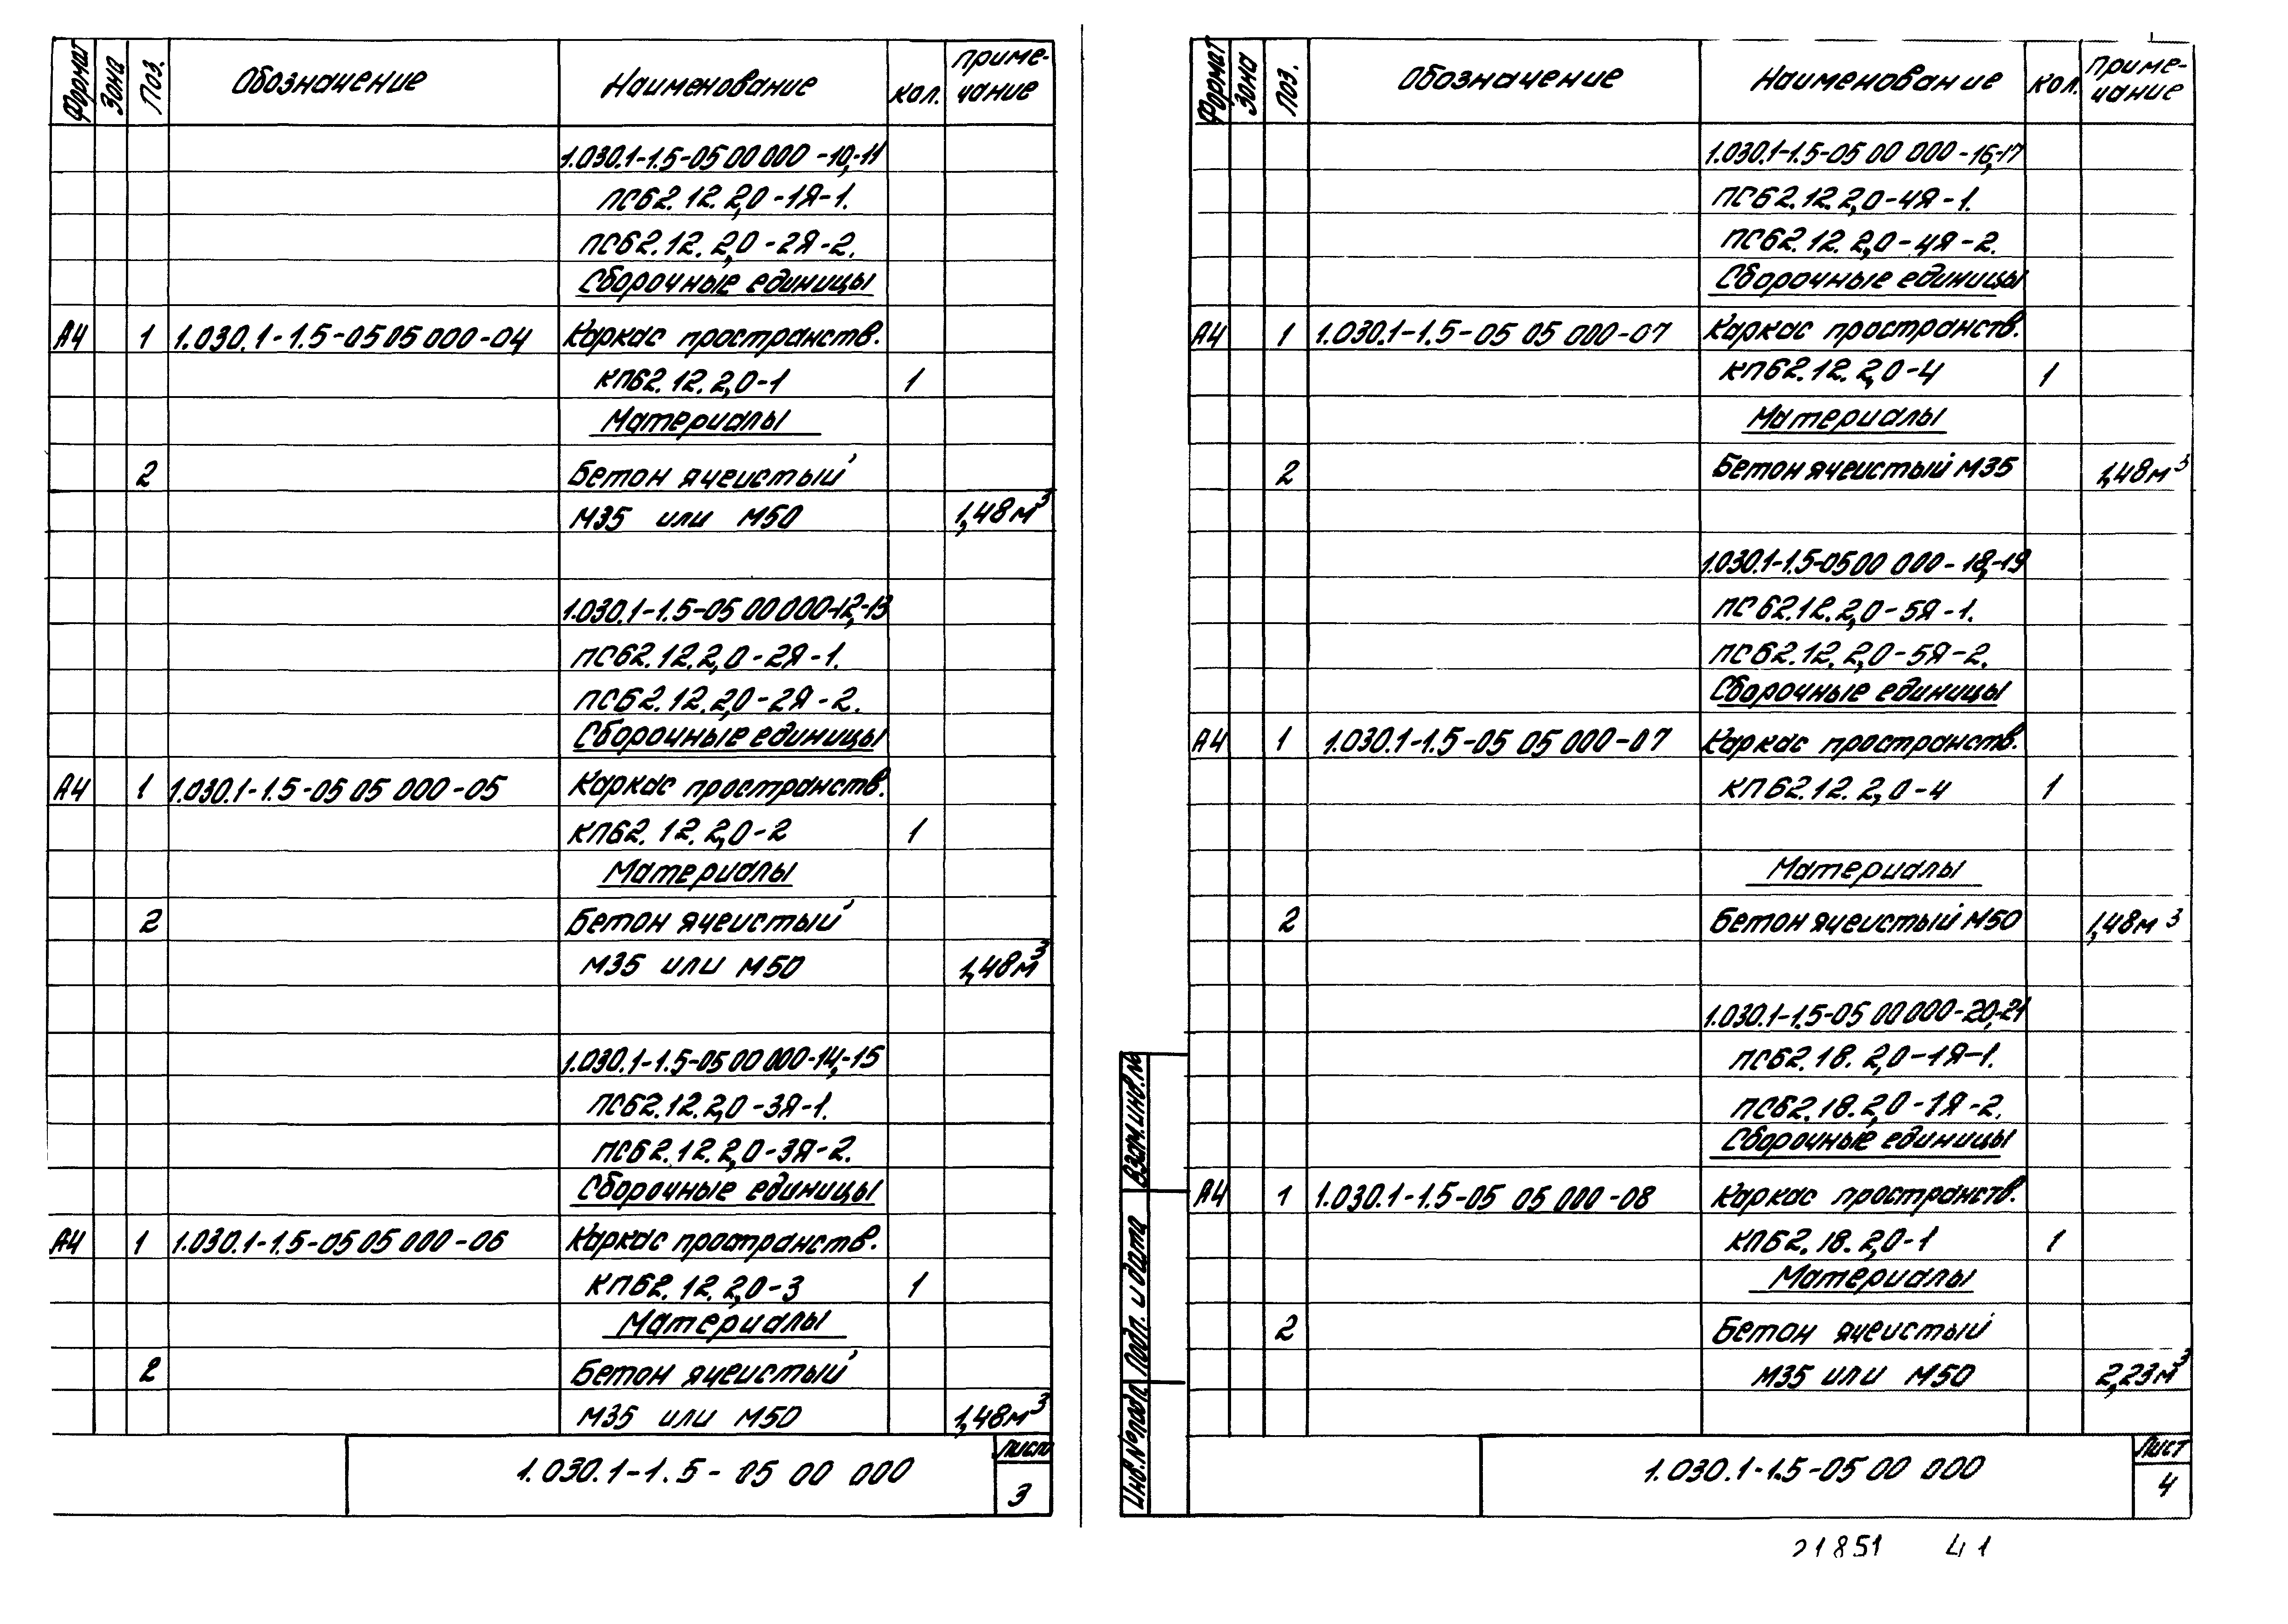 Формат Зона Поз. Обозначение Наименование кол. Приме-
чание
1.030.1-1.5-05 00 000 -10,-11
ПС62.12.2,0-1Я-1.
ПС62.12.2,0-2Я-2.
Сборочные единицы
А4 1 1.030.1-1.5-05 05 000-04 Каркас пространств.
КП62.12.2,0-1 1
Материалы
2 Бетон ячеистый
М35 или М50 1,48м³
1.030.1-1.5-05 00 000-12,-13
ПС62.12.2,0-2Я-1.
ПС62.12.2,0-2Я-2.
Сборочные единицы
А4 1 1.030.1-1.5-05 05 000-05 Каркас пространств.
КП62.12.2,0-2 1
Материалы
2 Бетон ячеистый
М35 или М50 1,48м³
1.030.1-1.5-05 00 000-14,-15
ПС62.12.2,0-3Я-1.
ПС62.12.2,0-3Я-2.
Сборочные единицы
А4 1 1.030.1-1.5-05 05 000-06 Каркас пространств.
КП62.12.2,0-3 1
Материалы
2 Бетон ячеистый
М35 или М50 1,48м³
1.030.1-1.5-05 00 000
Лист
3
Формат Зона Поз. Обозначение Наименование кол. Приме-
чание
1.030.1-1.5-05 00 000-16,-17
ПС62.12.2,0-4Я-1.
ПС62.12.2,0-4Я-2.
Сборочные единицы
А4 1 1.030.1-1.5-05 05 000-07 Каркас пространств.
КП62.12.2,0-4 1
Материалы
2 Бетон ячеистый М35 1,48м³
1.030.1-1.5-05 00 000-18,-19
ПС62.12.2,0-5Я-1.
ПС62.12.2,0-5Я-2.
Сборочные единицы
А4 1 1.030.1-1.5-05 05 000-07 Каркас пространств.
КП62.12.2,0-4 1
Материалы
2 Бетон ячеистый М50 1,48м³
1.030.1-1.5-05 00 000-20,-21
ПС62.18.2,0-1Я-1.
ПС62.18.2,0-1Я-2.
Сборочные единицы
А4 1 1.030.1-1.5-05 05 000-08 Каркас пространств.
КП62.18.2,0-1 1
Материалы
2 Бетон ячеистый
М35 или М50 2,23м³
Взам.инв.№
Подп. и дата
Инв.№подл.
1.030.1-1.5-05 00 000
Лист
4
21851 41